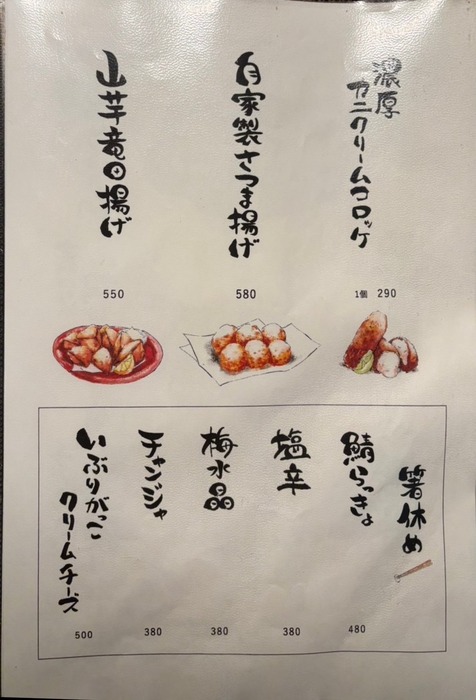 濃厚
カニクリームコロッケ
1個 290
自家製さつま揚げ
580
山芋竜田揚げ
550
箸休め
鯖らっきょ
480
塩辛
380
梅水晶
380
チャンジャ
380
いぶりがっこ
クリームチーズ
500